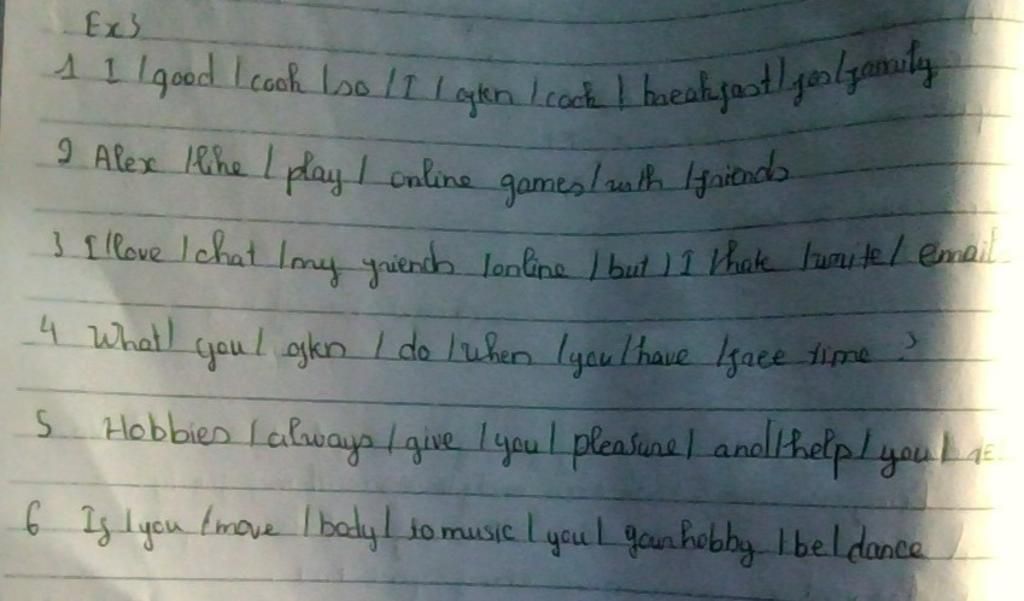 Ex3
1 I / good / cook / so / I / often / cook / breakfast / for / family
2 Alex / like / play / online games / with / friends
3 I / love / chat / my friends / online / but / I / hate / write / email
4 What / you / often / do / when / you / have / free time ?
5 Hobbies / always / give / you / pleasure / and / help / you /
6 If / you / move / body / to music / you / your hobby / be / dance